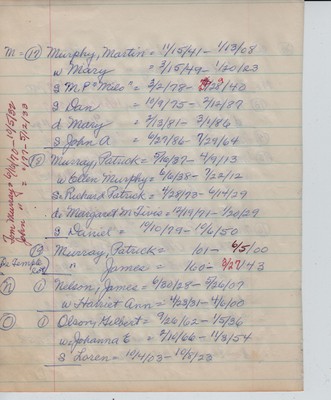 M = (17) Murphy, Martin = 11/15/41 - 1/13/08
w Mary = 3/15/49 - 1/20/23
s M.P. "Mike" = 3/2/78 - 9/28/40
s Dan = 10/9/75 - 7/12/87
d Mary = 2/13/81 - 3/1/86
s John A = 6/29/86 - 7/29/64
(18) Murray, Patrick = 5/10/37 - 4/9/13
w Ellen Murphy = 6/6/38 - 7/22/12
s Richard Patrick = 4/28/73 - 4/14/29
d Margaret M. Tires = 10/19/71 - 1/30/29
s Daniel = 10/10/79 - 10/6/50
(19) Murray, Patrick = 101 - 6/5/00
" James = 160 - 9/27/43
(N) (1) Nelson, James = 6/30/28 - 5/26/07
w Harriet Ann = 4/23/31 - 4/6/00
(O) (1) Olson, Gilbert = 9/26/62 - 1/5/36
w Johanna C = 2/10/66 - 11/3/54
s Loren = 10/4/03 - 10/8/23
Tom Murray =
John " =